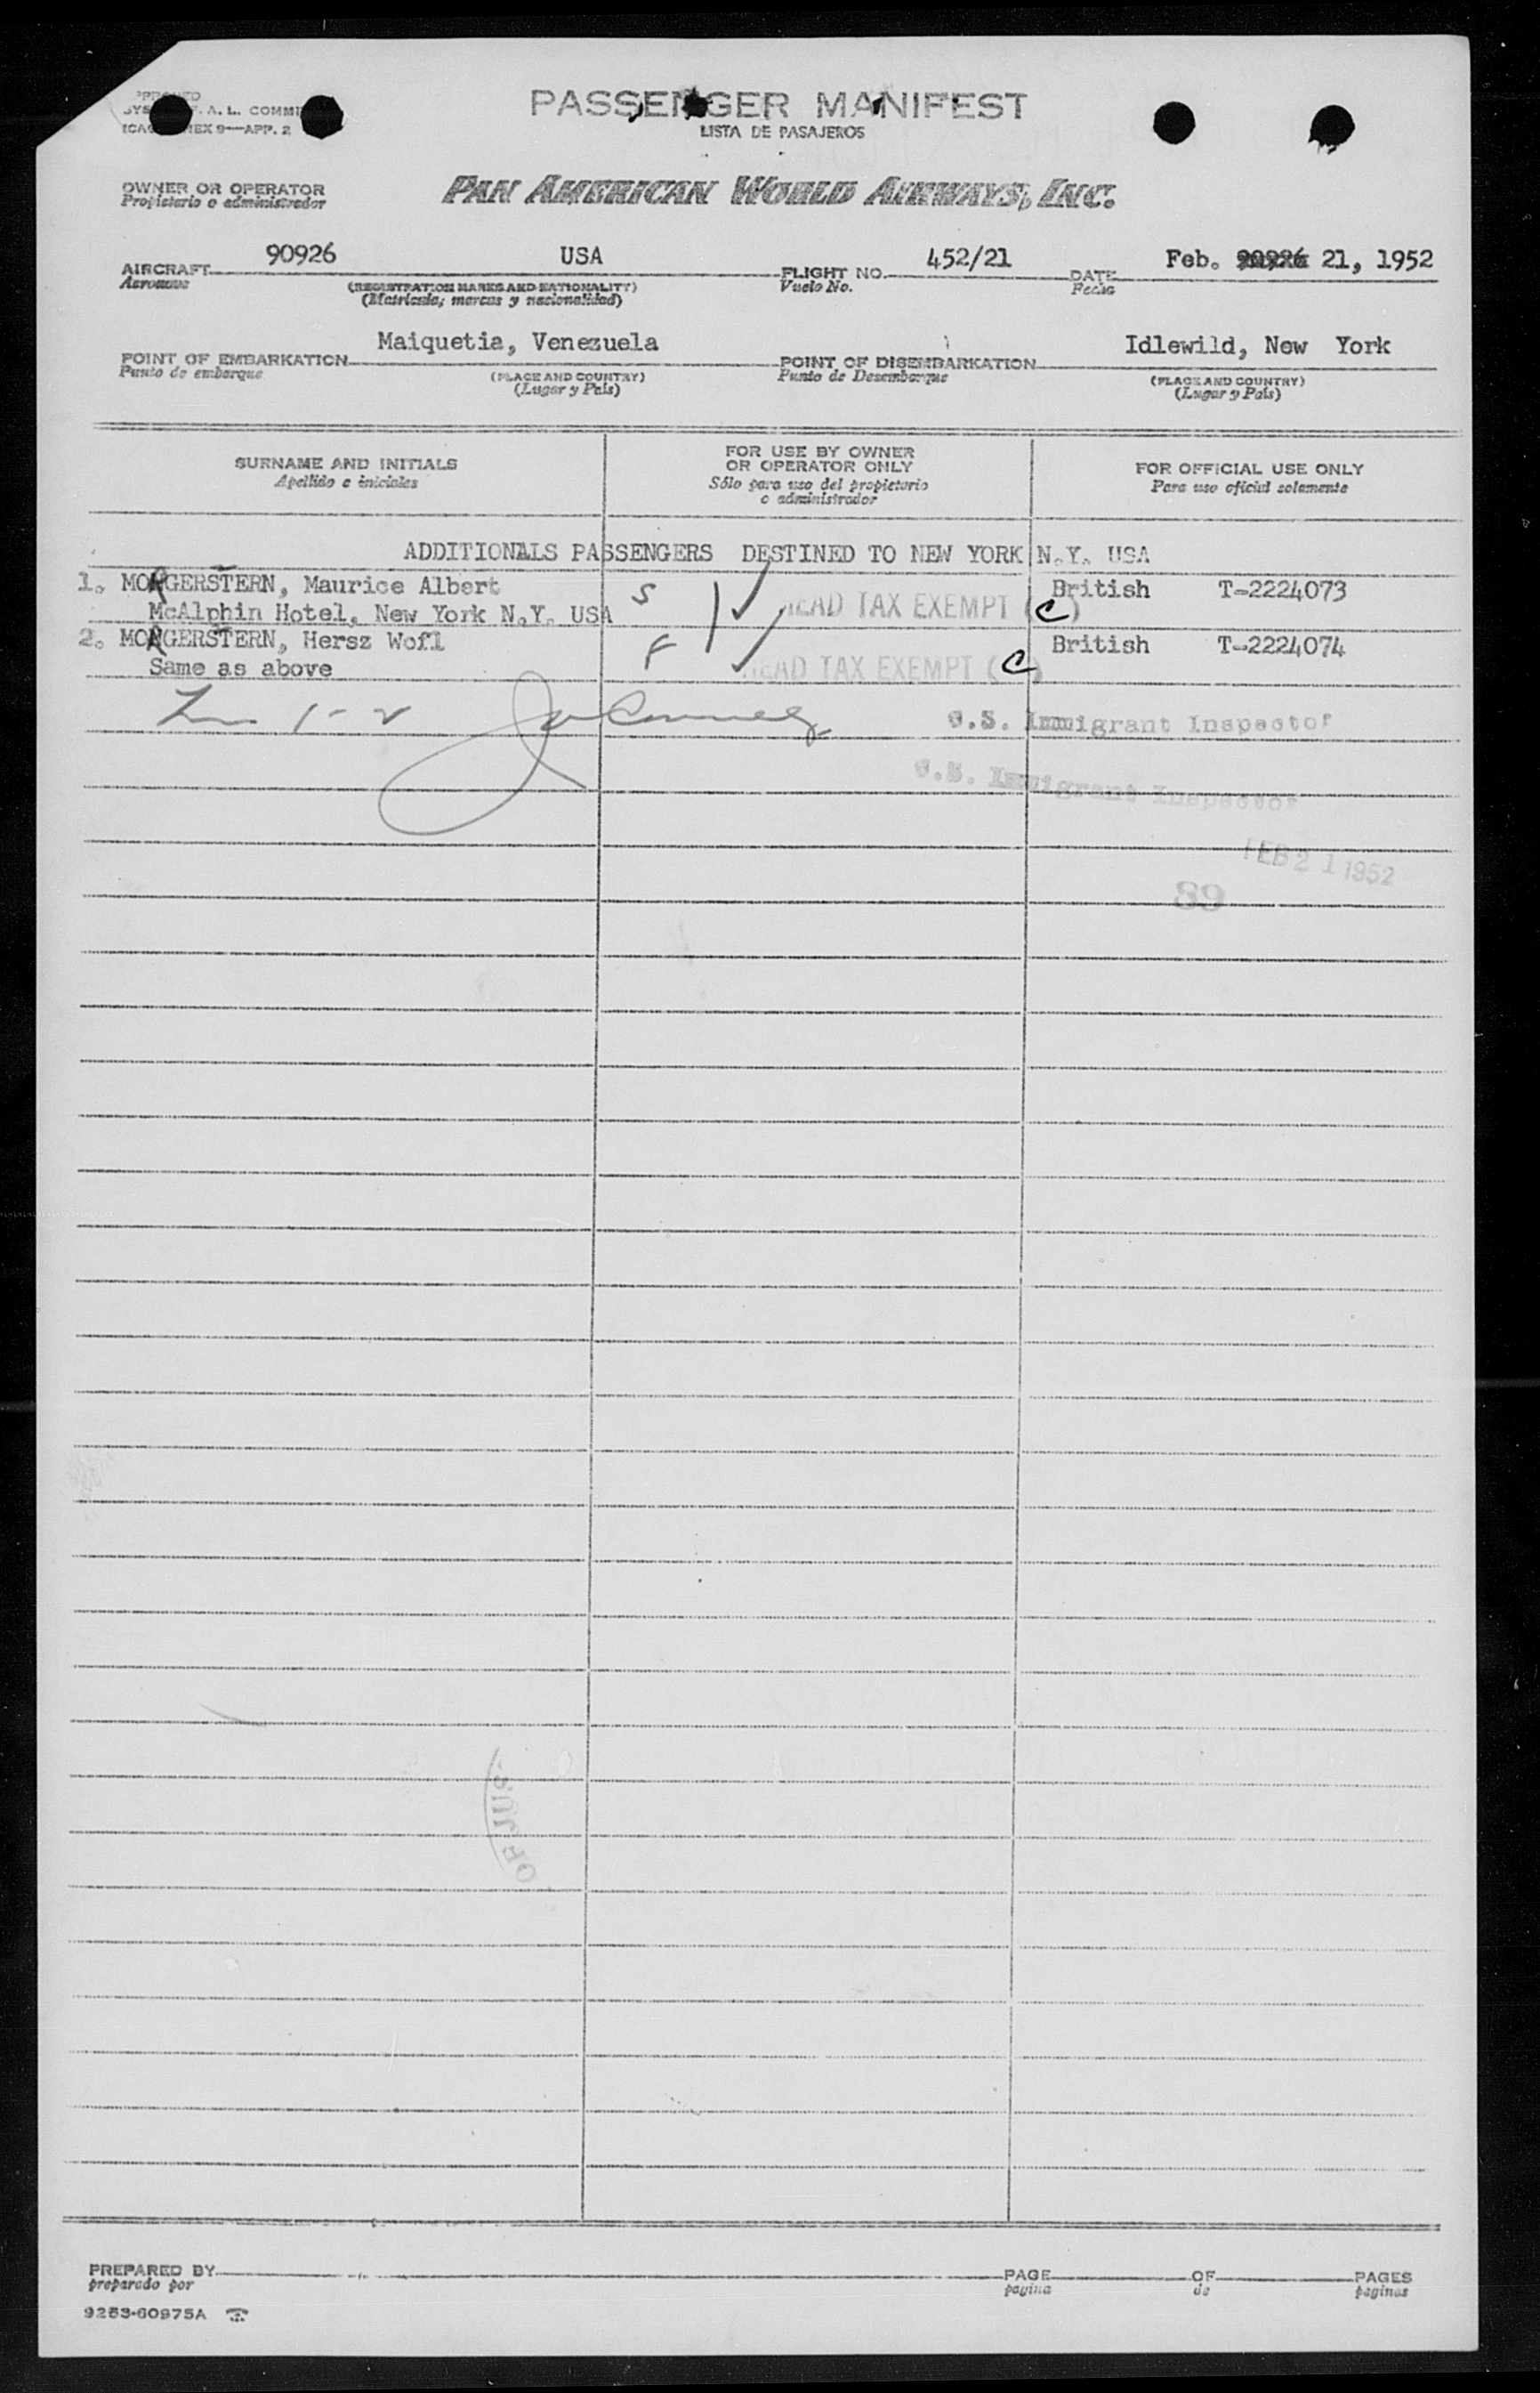 PASSENGER MANIFEST
LISTA DE PASAJEROS
A. L. COMMI
9—APP. 2
OWNER OR OPERATOR
Propietario o administrador
PAN AMERICAN WORLD AIRWAYS, INC.
AIRCRAFT 90926 USA FLIGHT NO. 452/21 DATE Feb. 21, 1952
Aeronave (REGISTRATION MARKS AND NATIONALITY) Vuelo No. Fecha
(Matricula, marcas y nacionalidad)
POINT OF EMBARKATION Maiquetia, Venezuela POINT OF DISEMBARKATION Idlewild, New York
Punto de embarque (PLACE AND COUNTRY) Punto de Desembarque (PLACE AND COUNTRY)
(Lugar y País) (Lugar y País)
SURNAME AND INITIALS FOR USE BY OWNER OR OPERATOR ONLY FOR OFFICIAL USE ONLY
Apellido e iniciales Sólo para uso del propietario o administrador Para uso oficial solamente
ADDITIONALS PASSENGERS DESTINED TO NEW YORK N.Y. USA
1. MORGERSTERN, Maurice Albert S British T-2224073
McAlphin Hotel, New York N.Y. USA HEAD TAX EXEMPT (C)
2. MORGERSTERN, Hersz Wofl F British T-2224074
Same as above HEAD TAX EXEMPT (C)
1-2 U.S. Immigrant Inspector
U.S. Immigrant Inspector
FEB 21 1952
89
OF JUS
PREPARED BY PAGE OF PAGES
preparado por pagina de paginas
9253-60975A